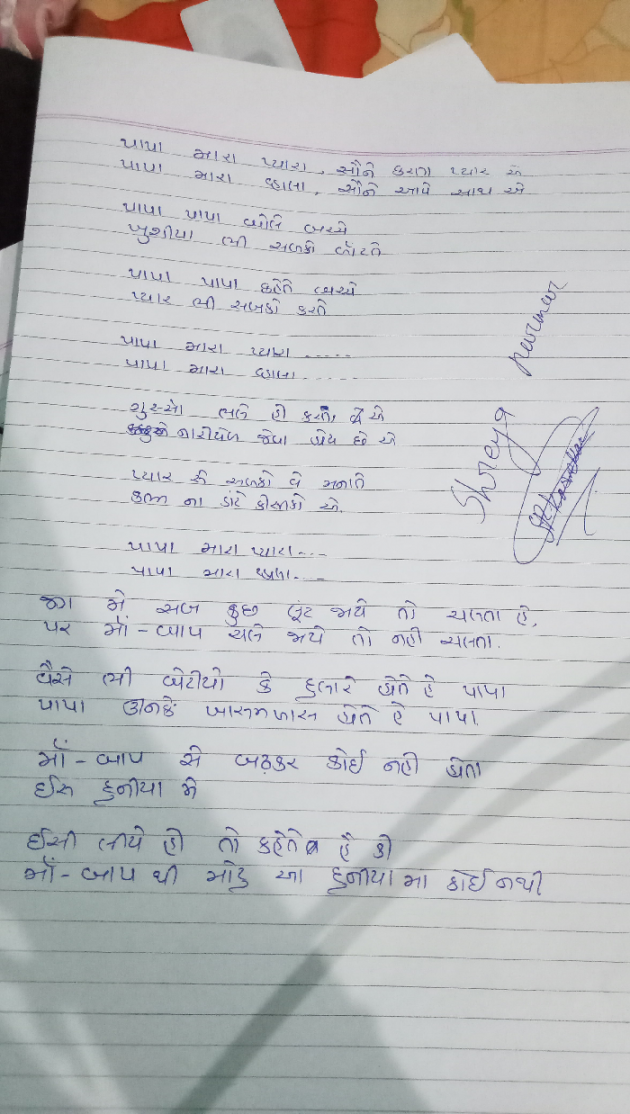 પાપા મારા પ્યારા, સૌને કરતા પ્યાર એ
પાપા મારા વ્હાલા, સૌને આપે સાથ એ
પાપા પાપા બોલે બચ્ચે
ખુશીયા ભી સબકો બાંટતે
પાપા પાપા કહેતે બચ્ચે
પ્યાર ભી સબકો કરતે
પાપા મારા પ્યારા .....
પાપા મારા વ્હાલા .....
ગુસ્સો ભલે હી કરતા, વે એ
નારીયેળ જેવા હોય છે એ
પ્યાર સે સબકો વે મનાતે
કભી ના ડાંટે કીસીકો એ.
પાપા મારા પ્યારા...
પાપા મારા વ્હાલા...
જગ મે સબ કુછ લૂંટ જાયે તો ચલતા હે,
પર માઁ-બાપ ચલે જાયે તો નહી ચલતા.
વૈસે ભી બેટીયો કે દુલારે હોતે હે પાપા
પાપા ઉનકે ખાસમખાસ હોતે હે પાપા.
માઁ-બાપ સે બઢકર કોઈ નહી હોતા
ઈસ દુનીયા મે
ઈસી લીયે હી તો કહેતે હૈ કી
માઁ-બાપ થી મોટુ આ દુનીયા મા કોઈ નથી
Shreya parmar